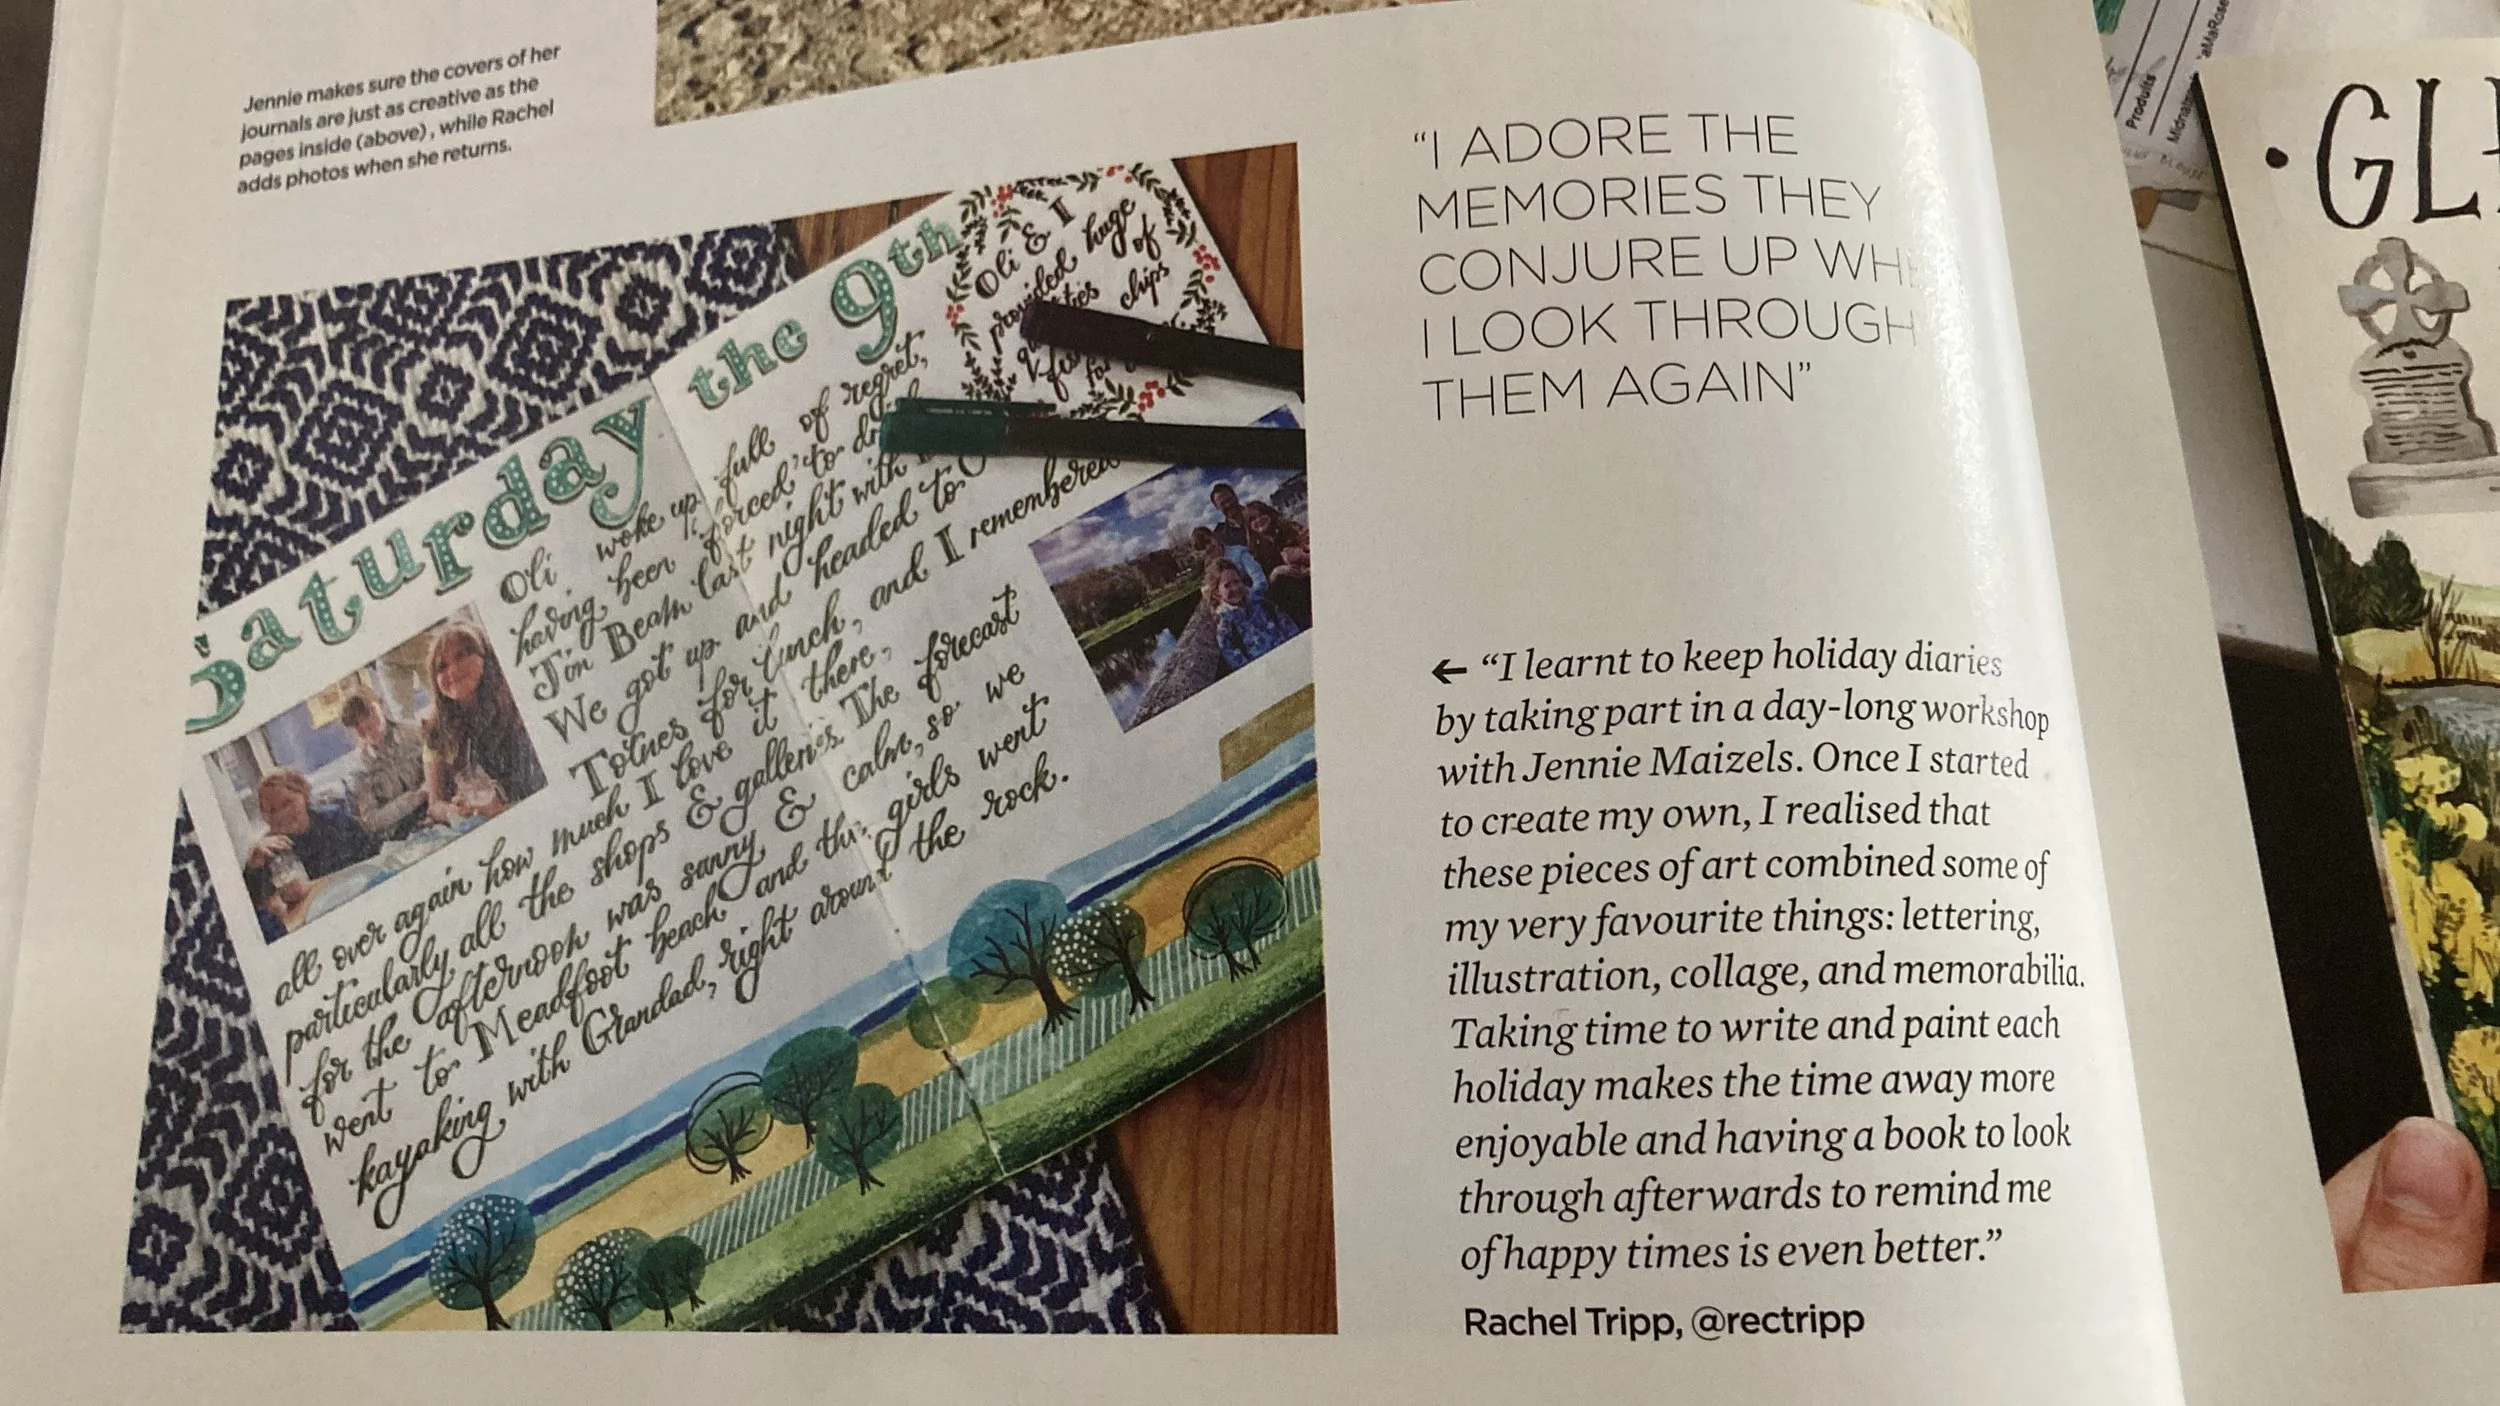 Jennie makes sure the covers of her
journals are just as creative as the
pages inside (above), while Rachel
adds photos when she returns.
Saturday the 9th
Oli woke up full of regret,
having been 'forced' to
Jim Beam last night with
We got up and headed to
Totnes for lunch, and I remembered
all over again how much I love it there,
particularly all the shops & galleries. The forecast
for the afternoon was sunny & calm, so we
went to Meadfoot beach and the girls went
kayaking with Grandad, right around the rock.
Oli & I
provided huge
of
chips
"I ADORE THE
MEMORIES THEY
CONJURE UP
I LOOK THROUGH
THEM AGAIN"
← "I learnt to keep holiday diaries
by taking part in a day-long workshop
with Jennie Maizels. Once I started
to create my own, I realised that
these pieces of art combined some of
my very favourite things: lettering,
illustration, collage, and memorabilia.
Taking time to write and paint each
holiday makes the time away more
enjoyable and having a book to look
through afterwards to remind me
of happy times is even better."
Rachel Tripp, @rectripp
Produits